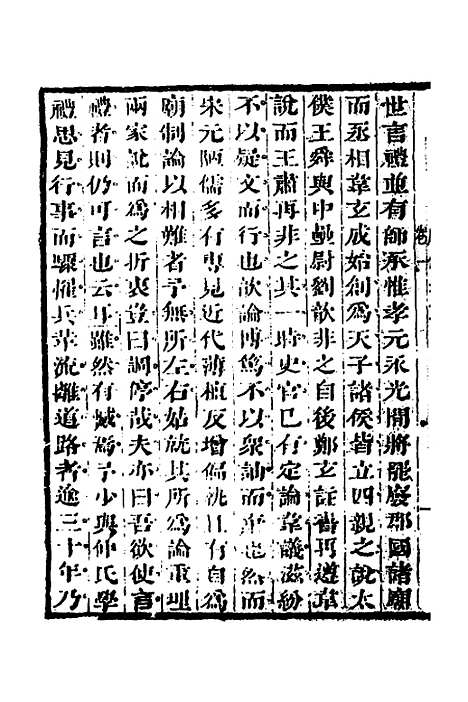 世言禮並有師承惟孝元永光間將罷廢郡國諸廟
而丞相韋玄成始創為天子諸侯皆立四親之說太
僕王舜與中壘尉劉歆非之自後鄭玄註書再遵韋
說而王肅再非之其一時史官已有定論韋議滋紛
不以疑文而行也歆論博篤不以衆訕而也然而
宋元陋儒多有專見近代薄植反增偏執且有自為
廟制論以相難者予無所左右姑就其所為論重理
兩家說而為之折衷豈曰調停哉夫亦曰吾欲使言
禮者則仍可言也云耳雖然有憾焉予少與仲氏學
禮思見行事而驟罹兵革流離道路者逾三十年乃